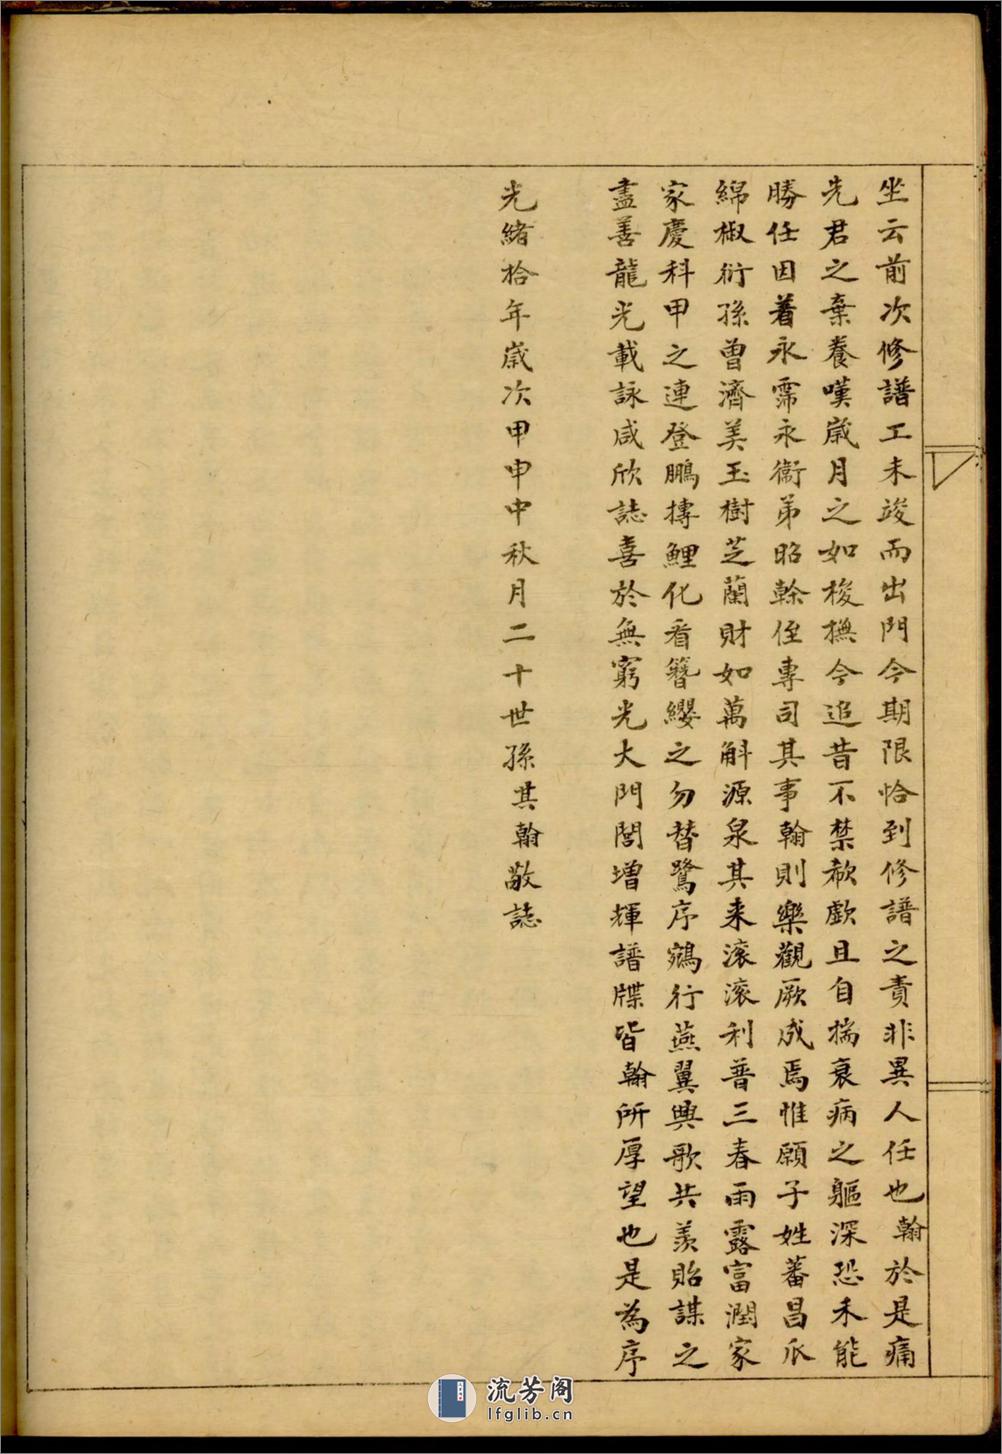 坐云前次修譜工未竣而出門今期限恰到修譜之責非異人任也翰於是痛
先君之棄養嘆歲月之如梭撫今追昔不禁欷歔且自揣衰病之軀深恐未能
勝任因着永霈永衢弟昭榦侄專司其事翰則樂觀厥成焉惟願子姓蕃昌瓜
綿椒衍孫曾濟美玉樹芝蘭財如萬斛源泉其来滚滚利普三春雨露富潤家
家慶科甲之連登鵬摶鯉化看簪纓之勿替鷺序鵷行燕翼興歌共羨貽謀之
盡善龍光載詠咸欣誌喜於無窮光大門閭增輝譜牒皆翰所厚望也是為序
光緒拾年歲次甲申中秋月二十世孫其翰敬誌
流芳阁
lfglib.cn